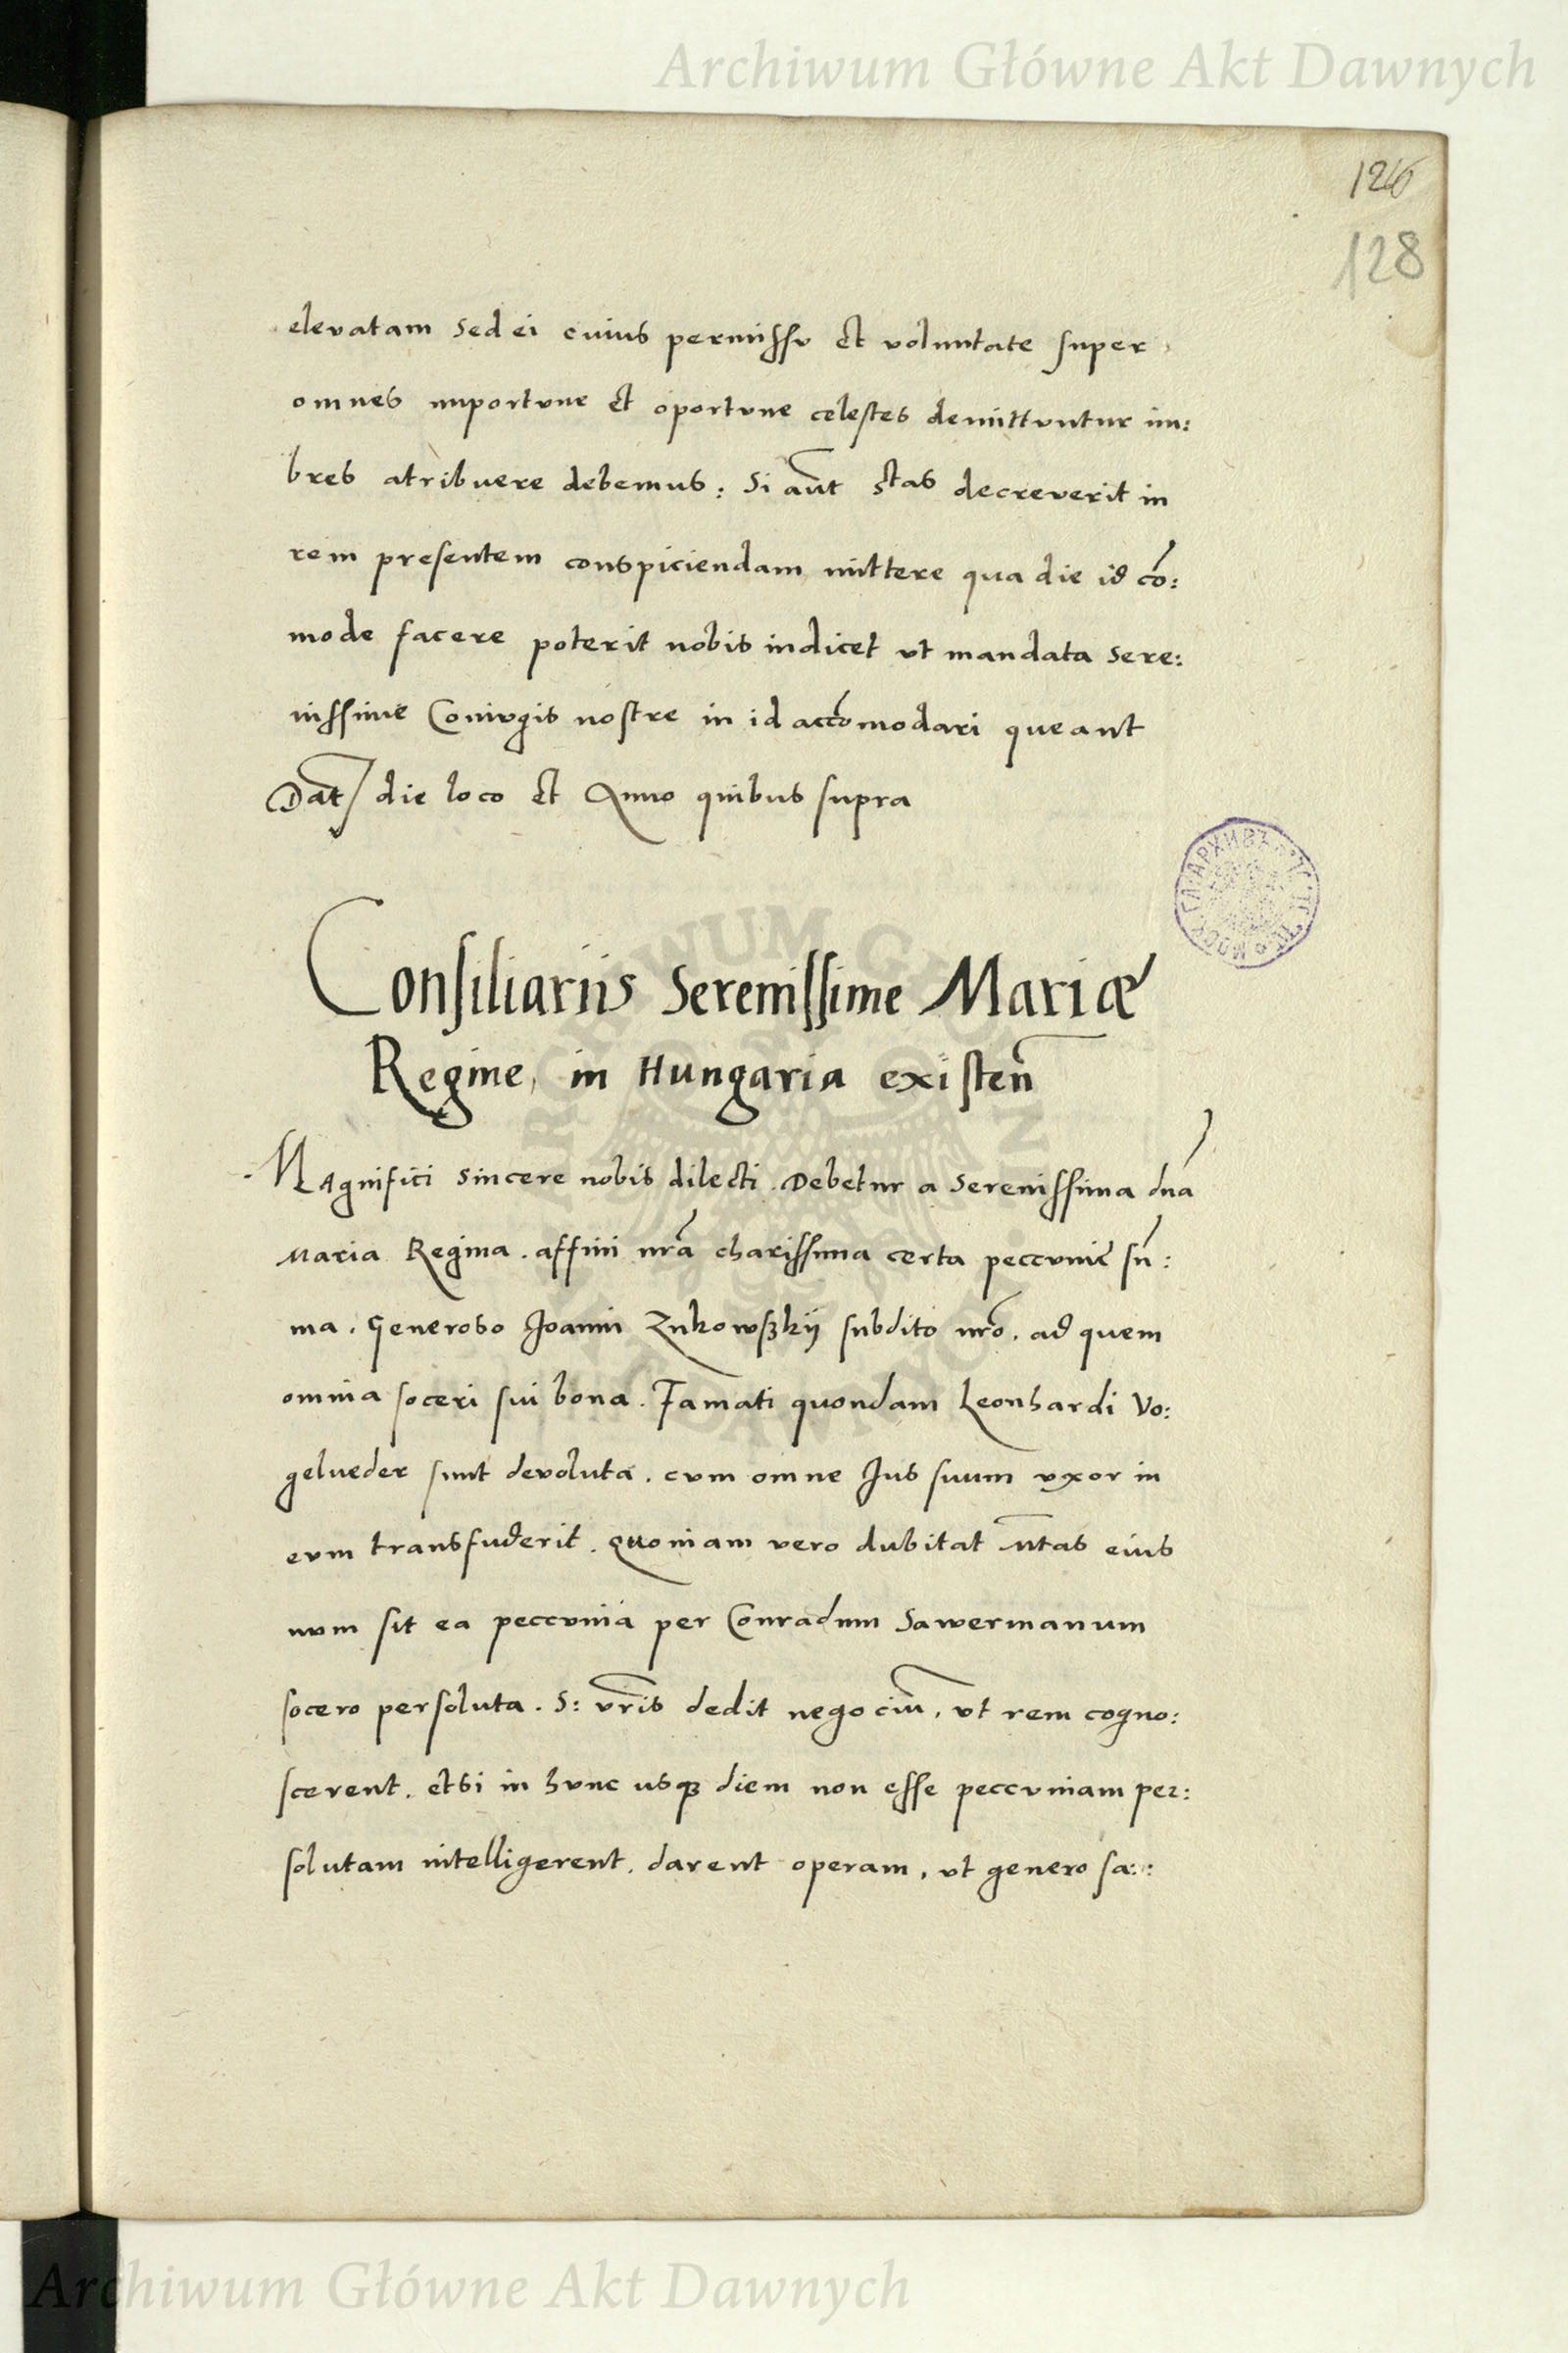 Archiwum Główne Akt Dawnych
126
128
elevatam sed ei cuius permissu et voluntate super
omnes importune et oportune celestes demittuntur im:
bres atribuere debemus: Si aut̄ Stas decreverit in
rem presentem conspiciendam mittere qua die id cō:
mode facere poterit nobis indicet vt mandata Sere:
nissime Coniugis nostre in id accōmodari queant
Dat̄ die loco et Anno quibus supra
Consiliariis Serenissime Mariæ
Regine, in Hungaria existen̄
MAgnifici sincere nobis dilecti. Debetur a Serenissima dn̄a
Maria Regina. affini nr̄a charissima certa peccunie sū:
ma. Generoso Joanni Zukowszkij subdito nrō. ad quem
omnia soceri sui bona. Famati quondam Leonhardi Vo:
gelveder sunt devoluta. cvm omne Jus suum vxor in
evm transfuderit. quoniam vero dubitat M̄tas eius
nvm sit ea peccvnia per Conradum Sawermanum
socero persoluta. S: vr̄is dedit negociū, vt rem cogno:
scerent. etsi in hvnc usq3 diem non esse peccvniam per:
solutam intelligerent. darent operam, vt genero sa::
Archiwum Główne Akt Dawnych